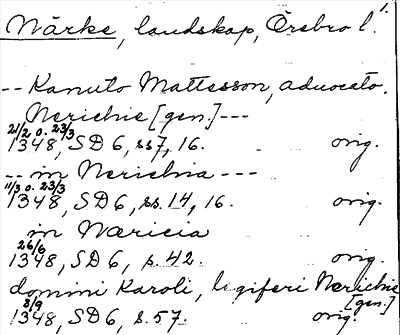 1.
Närke, landskap, Örebro l.
-- Kanuto Mattesson, aduocato
Nerichie [gen.] ---
21/2 o. 23/3
1348, SD 6, ss 7, 16. orig.
-- in Nerichia ---
11/3 o. 23/3
1348, SD 6, ss. 14, 16. orig.
in Næricia
26/6
1348, SD 6, s. 42. orig.
domini Karoli, legiferi Nerichie
[gen.]
8/9
1348, SD 6, s. 57. orig.